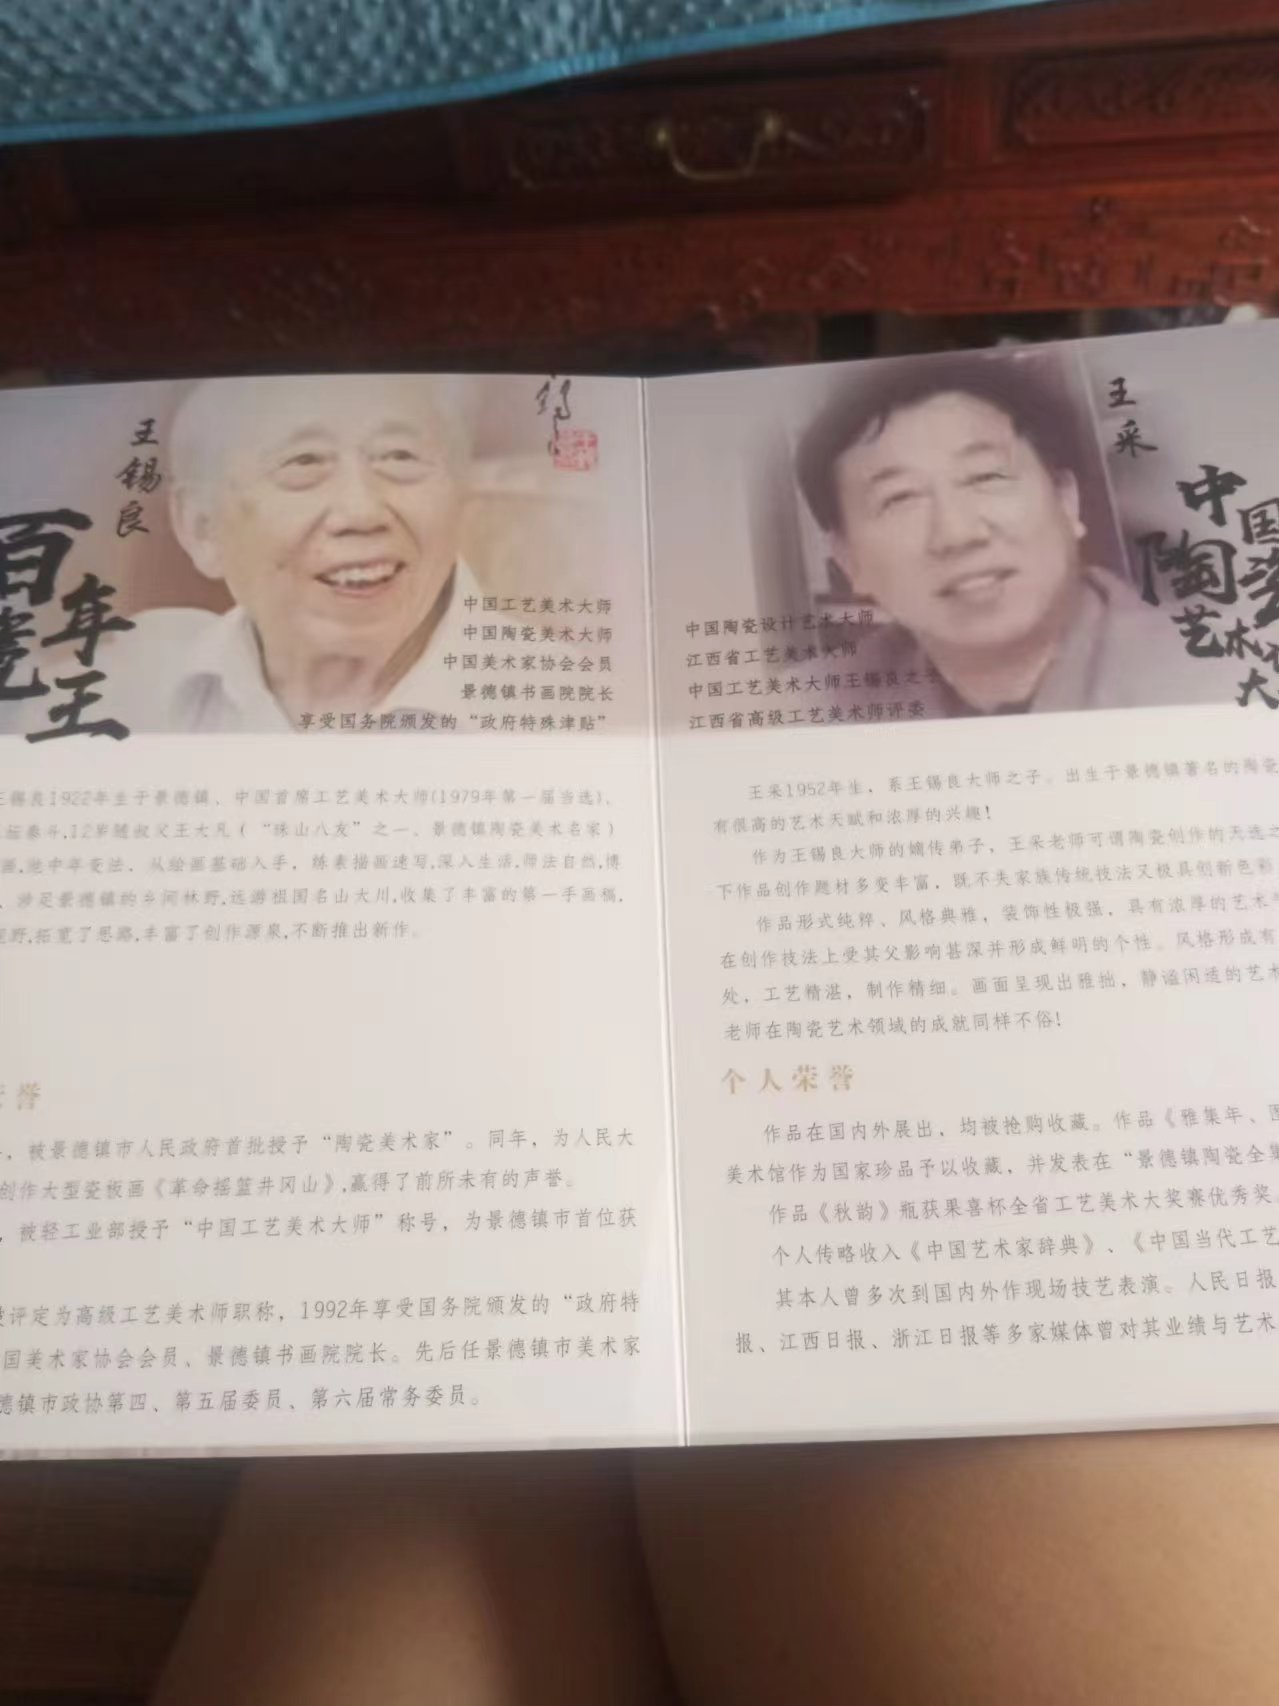 王锡良
百年
瓷王
中国工艺美术大师
中国陶瓷美术大师
中国美术家协会会员
景德镇书画院院长
享受国务院颁发的“政府特殊津贴”
王锡良1922年生于景德镇、中国首席工艺美术大师(1979年第一届当选)、
坛泰斗,12岁随叔父王大凡(“珠山八友”之一、景德镇陶瓷美术名家)
画,他中年变法、从绘画基础入手,练素描画速写,深入生活,师法自然,博
、涉足景德镇的乡间林野,远游祖国名山大川,收集了丰富的第一手画稿,
视野,拓宽了思路,丰富了创作源泉,不断推出新作。
誉
,被景德镇市人民政府首批授予“陶瓷美术家”。同年,为人民大
创作大型瓷板画《革命摇篮井冈山》,赢得了前所未有的声誉。
,被轻工业部授予“中国工艺美术大师”称号,为景德镇市首位获
评定为高级工艺美术师职称,1992年享受国务院颁发的“政府特
国美术家协会会员、景德镇书画院院长。先后任景德镇市美术家
德镇市政协第四、第五届委员、第六届常务委员。
王采
中国
陶瓷
艺术
大
中国陶瓷设计艺术大师
江西省工艺美术大师
中国工艺美术大师王锡良之子
江西省高级工艺美术师评委
王采1952年生,系王锡良大师之子。出生于景德镇著名的陶瓷
有很高的艺术天赋和浓厚的兴趣!
作为王锡良大师的嫡传弟子,王采老师可谓陶瓷创作的天选之
下作品创作题材多变丰富,既不失家族传统技法又极具创新色彩
作品形式纯粹、风格典雅,装饰性极强,具有浓厚的艺术
在创作技法上受其父影响甚深并形成鲜明的个性。风格形成有
处,工艺精湛,制作精细。画面呈现出雅拙,静谧闲适的艺术
老师在陶瓷艺术领域的成就同样不俗!
个人荣誉
作品在国内外展出,均被抢购收藏。作品《雅集年、
美术馆作为国家珍品予以收藏,并发表在“景德镇陶瓷全集
作品《秋韵》瓶获果喜杯全省工艺美术大奖赛优秀奖
个人传略收入《中国艺术家辞典》、《中国当代工艺
其本人曾多次到国内外作现场技艺表演。人民日报
报、江西日报、浙江日报等多家媒体曾对其业绩与艺术